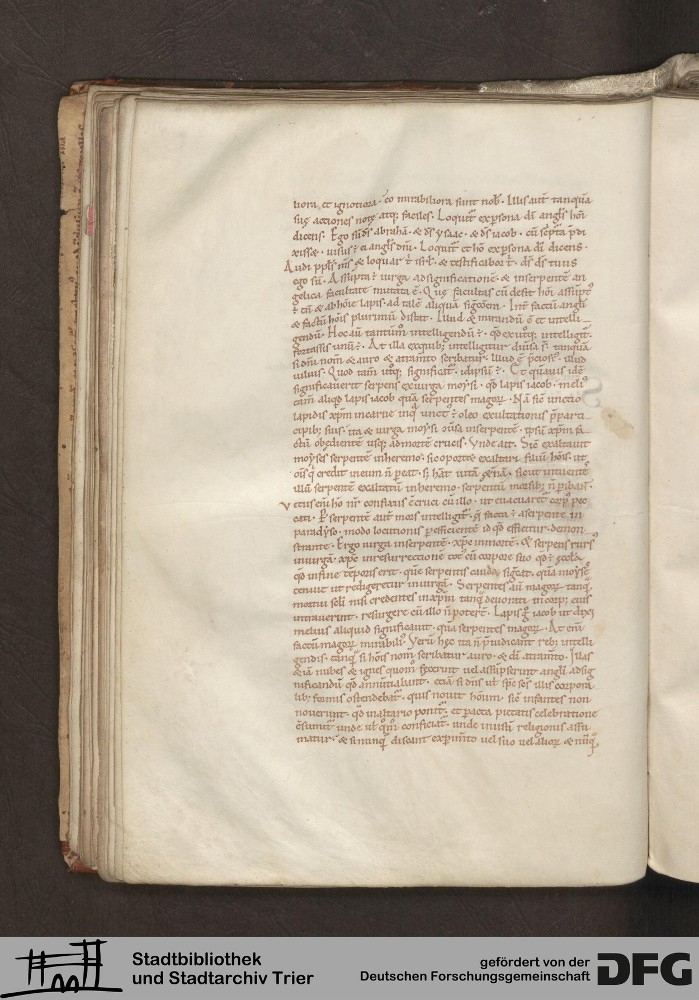 liora, et ignotiora. eo mirabiliora sunt nob. Illis aut tanqua
suę actiones notę atq; faciles. Loquit exp̄sona di angls hoi
dicens. Ego su ds abraha. & ds ysaac. & ds iacob. cu
xisset. visus ei angls dni. Loquit et ho exp̄sona di dicens.
Audi ppls ms & loquar t isrl. & testificabor t. ds ds tuus
ego su. Assupta virga adsignificatione. & inserpente an
gelica facultate mutata e. Quę facultas cu desit hoi
cu & abhoie lapis. ad tale aliqua Int factu angli
& factu hois plurimu distat. Illud & mirandu e et intelli
gendu. Hoc aut tantum intelligendu. qd exutoq; intelligit.
fortassis unu. At illa exquib; intelligitur diuisa st. tanqua
si dni nom & auro & atramto scribatur. illud e p̄ciosi illud
uilius. Quod tam utoq; significat. idipsu Et quauis ide
significauerit serpens exuirga moysi. qd lapis iacob. meli
tam aliqd lapis iacob qua serpentes magor. Na sic unctio
lapidis xpm incarne inq unct e oleo exultationis p̄ parti
cipib; suis. ita & uirga moysi inserpente. ipsu xpm fa
ctu obediente usq; admorte crucis. Vnde ait. Sic exaltauit
moyses serpente inheremo. sic oportet exaltari filiu hois. ut
ois q credit ineum n peat. s; hat uita sicut intuente
illu serpente exaltatu inheremo. serpentu morsib; n
Vetus eni ho nr confixus e cruci cu illo. ut euacuaret corp pec
cati. P serpente aut mors intelligit. q facta e aserpente in
paradyso. modo locutionis p efficiente id qd efficitur. demon
strante. Ergo uirga inserpente. xpc inmorte. & serpens rurs
inuirga. xpc inresurrectione tot cu corpore suo
qd infine teporis erit. que serpentis cauda qua moyses
tenuit ut redigeretur inuirga. Serpentes aut magor tanq
mortui scli nisi credentes inxpm tanq deuorati incorp; eius
intrauerint. resurgere cu illo n poterunt. Lapis g iacob ut dixi
melius aliquid significauit. qua serpentes magor. At eni
factu magor mirabili. Veru hęc ita n p̄iudicant reb; intelli
gendis. tanq si hois nom scribatur auro. & di atramto. Illas
& ia nubes & ignes quom fecerint uel assupserint angli adsig
nificandu qd annutiabant. etia si dns ul sps scs illis corpora
lib; formis ostendebat. quis nouit houm. sic infantes non
nouerunt. qd inaltario ponit. et pacta pietatis celebratione
csumit. unde ul quo conficiat. unde inusu religionis assu
matur. & sinunq discant exp̄imto uel suo uel alior & nuq
Stadtbibliothek
und Stadtarchiv Trier
gefördert von der
Deutschen Forschungsgemeinschaft
DFG